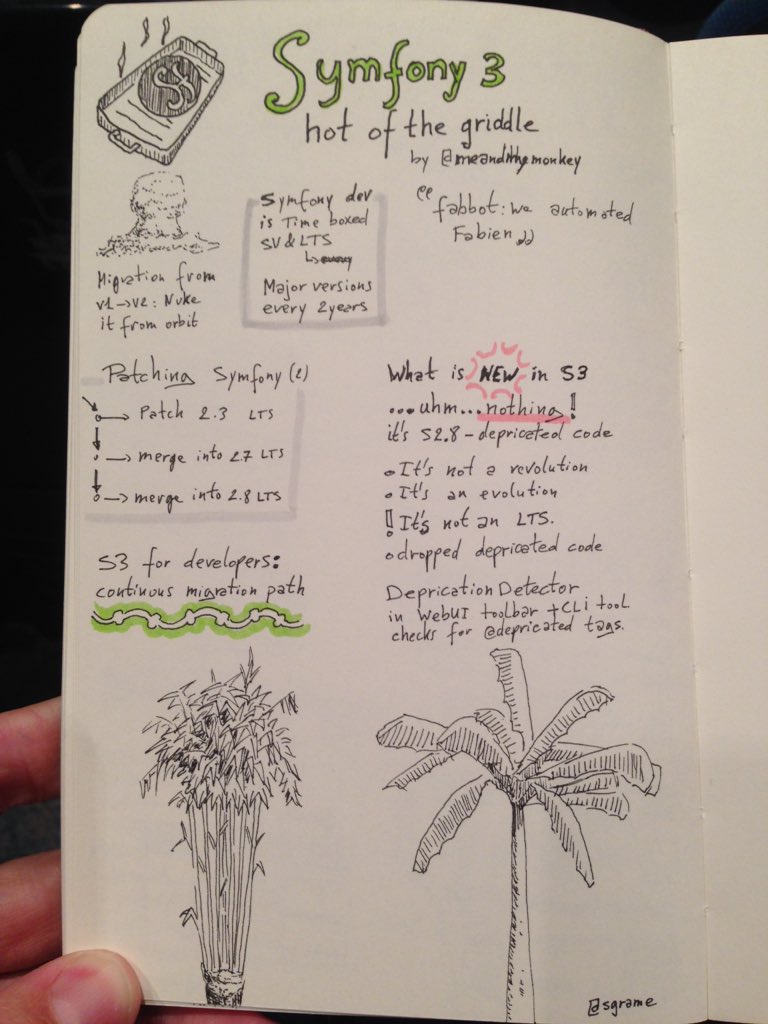 Symfony 3
hot of the griddle
by @meandthemonkey
Symfony dev
is Time boxed
SV & LTS
Major versions
every 2 years
"fabbot: we automated
Fabien"
Migration from
v1→v2: Nuke
it from orbit
Patching Symfony (2)
→ Patch 2.3 LTS
→ merge into 2.7 LTS
→ merge into 2.8 LTS
S3 for developers:
continuous migration path
What is NEW in S3
...uhm...nothing!
it's S2.8 - depricated code
• It's not a revolution
• It's an evolution
! It's not an LTS.
• dropped depricated code
Deprication Detector
in WebUI toolbar + CLi tool
checks for @depricated tags.
@sgrame